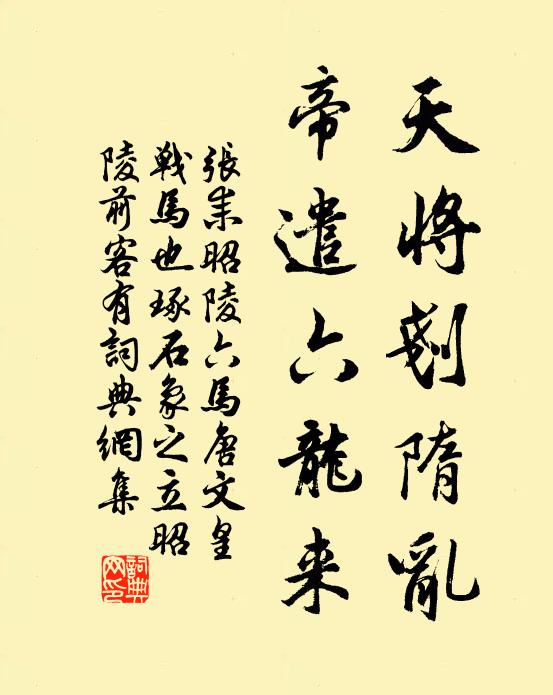 天将剗隋亂
帝遣六龍来
張耒昭陵六馬唐文皇
戰馬也琢石象之立昭
陵前客有詞典網集
詞典
网印